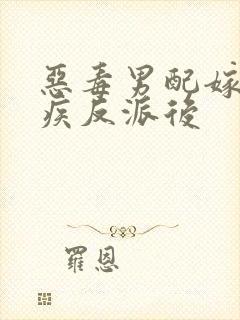 惡毒男配嫁
疾反派後
羅恩